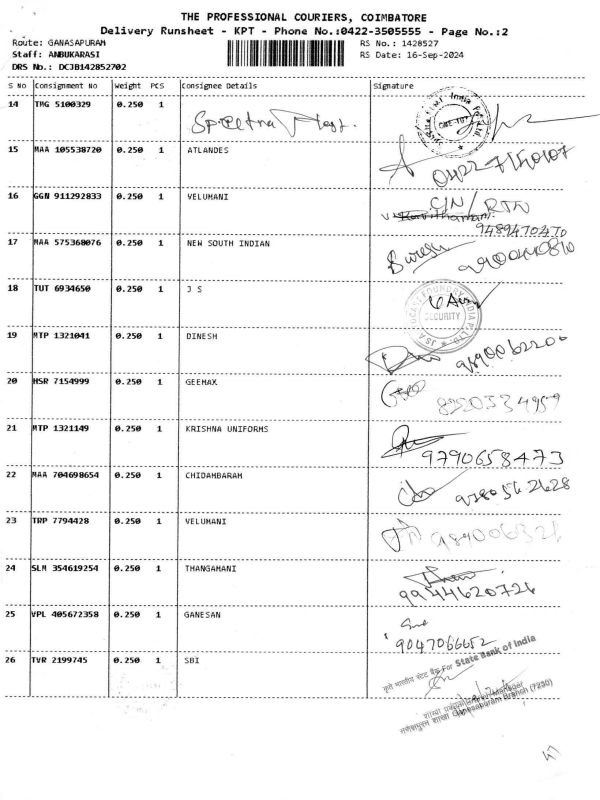 THE PROFESSIONAL COURIERS, COIMBATORE
Delivery Runsheet - KPT - Phone No.:0422-3505555 - Page No.:2
Route: GANASAPURAM
RS No.: 1428527
Staff: ANBUKARASI
RS Date: 16-Sep-2024
DRS No.: DCJB142852702
S No Consignment No Weight PCS Consignee Details Signature
14 TMG 5100329 0.250 1
15 MAA 105538720 0.250 1 ATLANDES
16 GGN 911292833 0.250 1 VELUMANI
C/N/ RTN
9489470470
17 MAA 575368076 0.250 1 NEW SOUTH INDIAN
Suresh
18 TUT 6934650 0.250 1 J S
SECURITY
19 MTP 1321041 0.250 1 DINESH
20 HSR 7154999 0.250 1 GEEMAX
21 MTP 1321149 0.250 1 KRISHNA UNIFORMS
9790658473
22 MAA 704698654 0.250 1 CHIDAMBARAM
23 TRP 7794428 0.250 1 VELUMANI
24 SLM 354619254 0.250 1 THANGAMANI
9944620726
25 VPL 405672358 0.250 1 GANESAN
9047066652
26 TVR 2199745 0.250 1 SBI
कृते भारतीय स्टेट बैंक For State Bank of India
Ganesapuram Branch (7230)